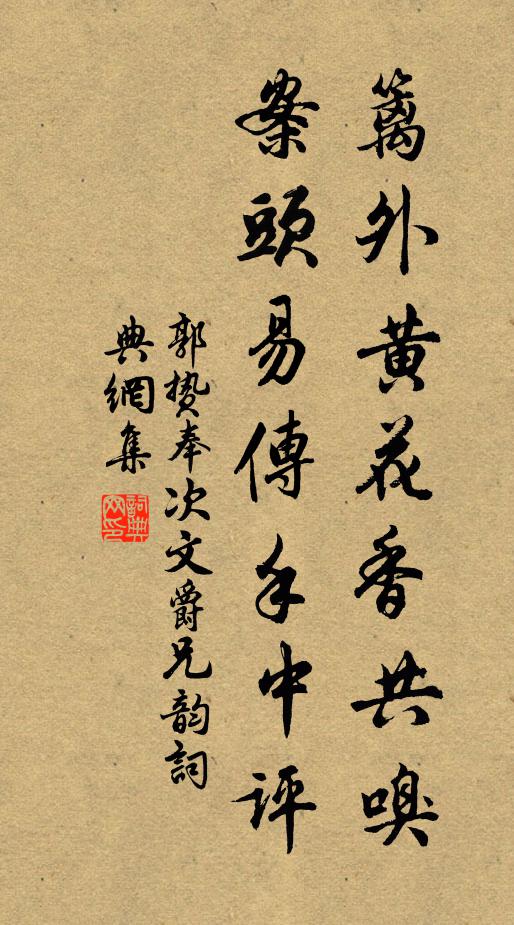 籬外黄花香共嗅
案頭易傳手中評
郭贄奉次文爵兄韵詞
典網集
詞典網印